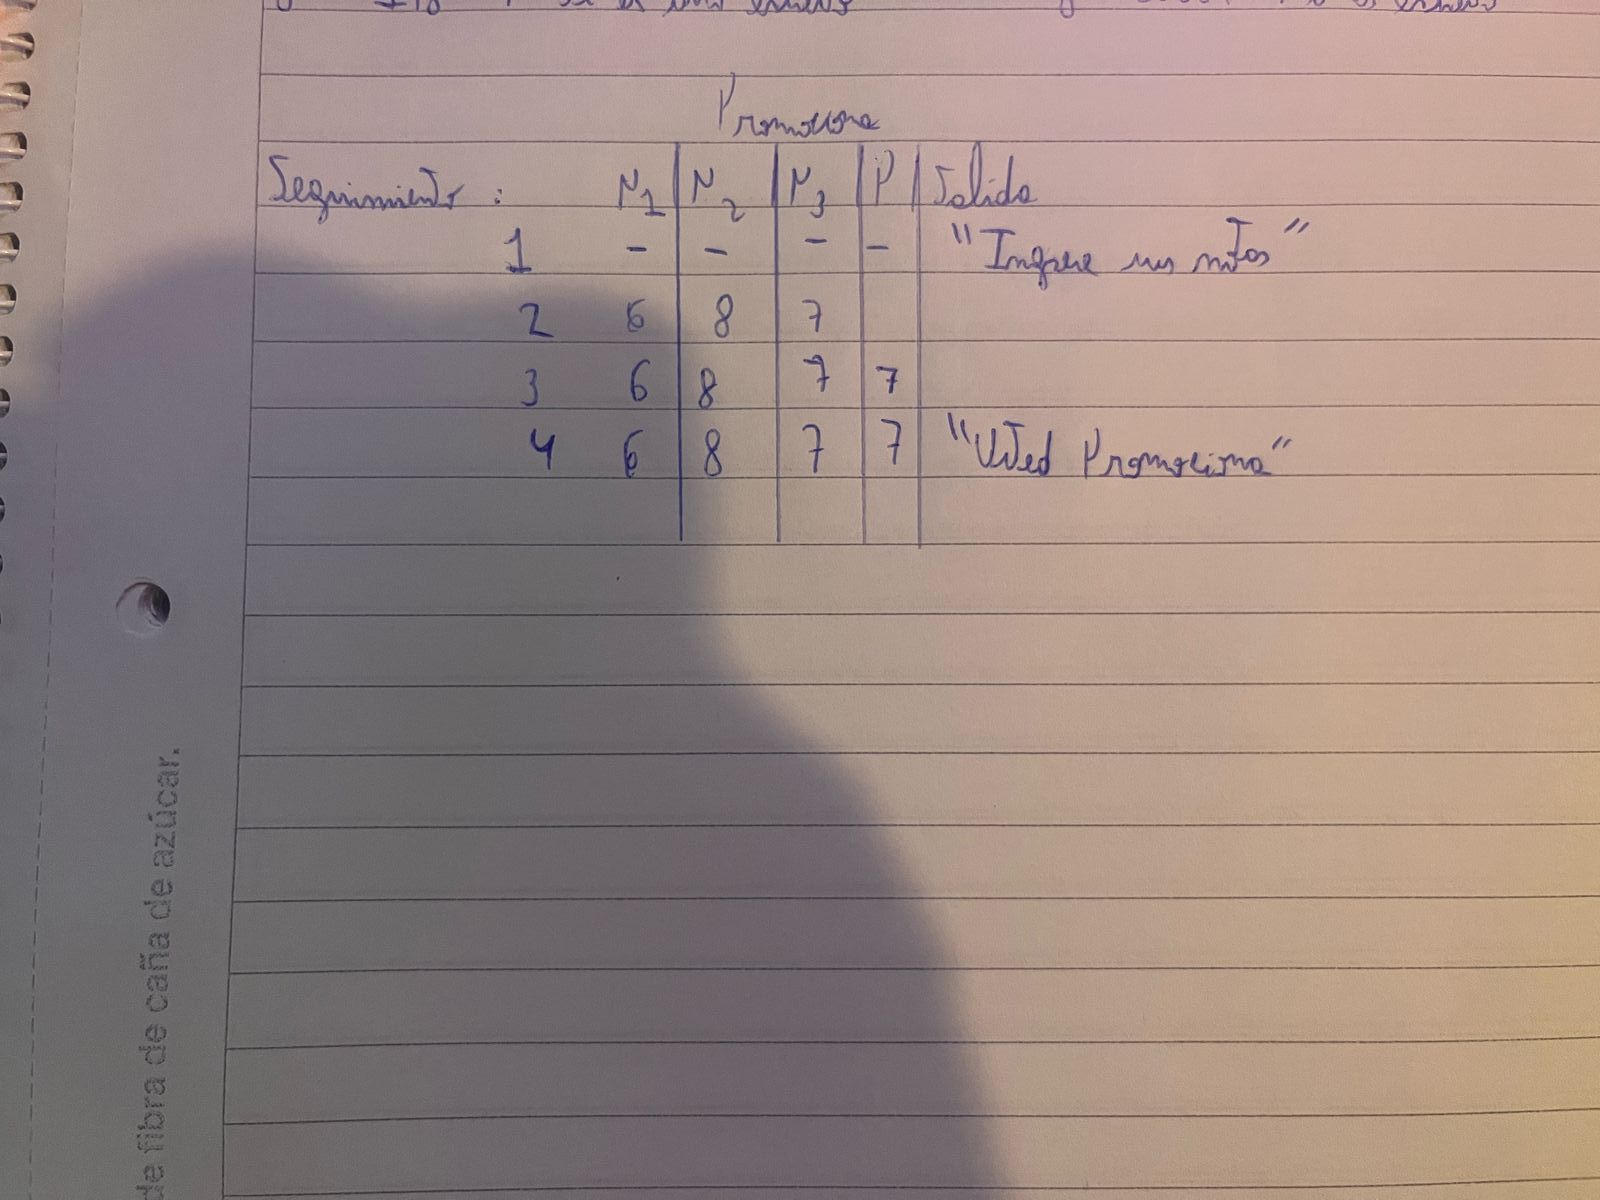 Promociona
Seguimiento : N1 N2 N3 P Salida
1 - - - - "Ingrese sus notas"
2 6 8 7
3 6 8 7 7
4 6 8 7 7 "Usted Promociona"
de fibra de caña de azúcar.